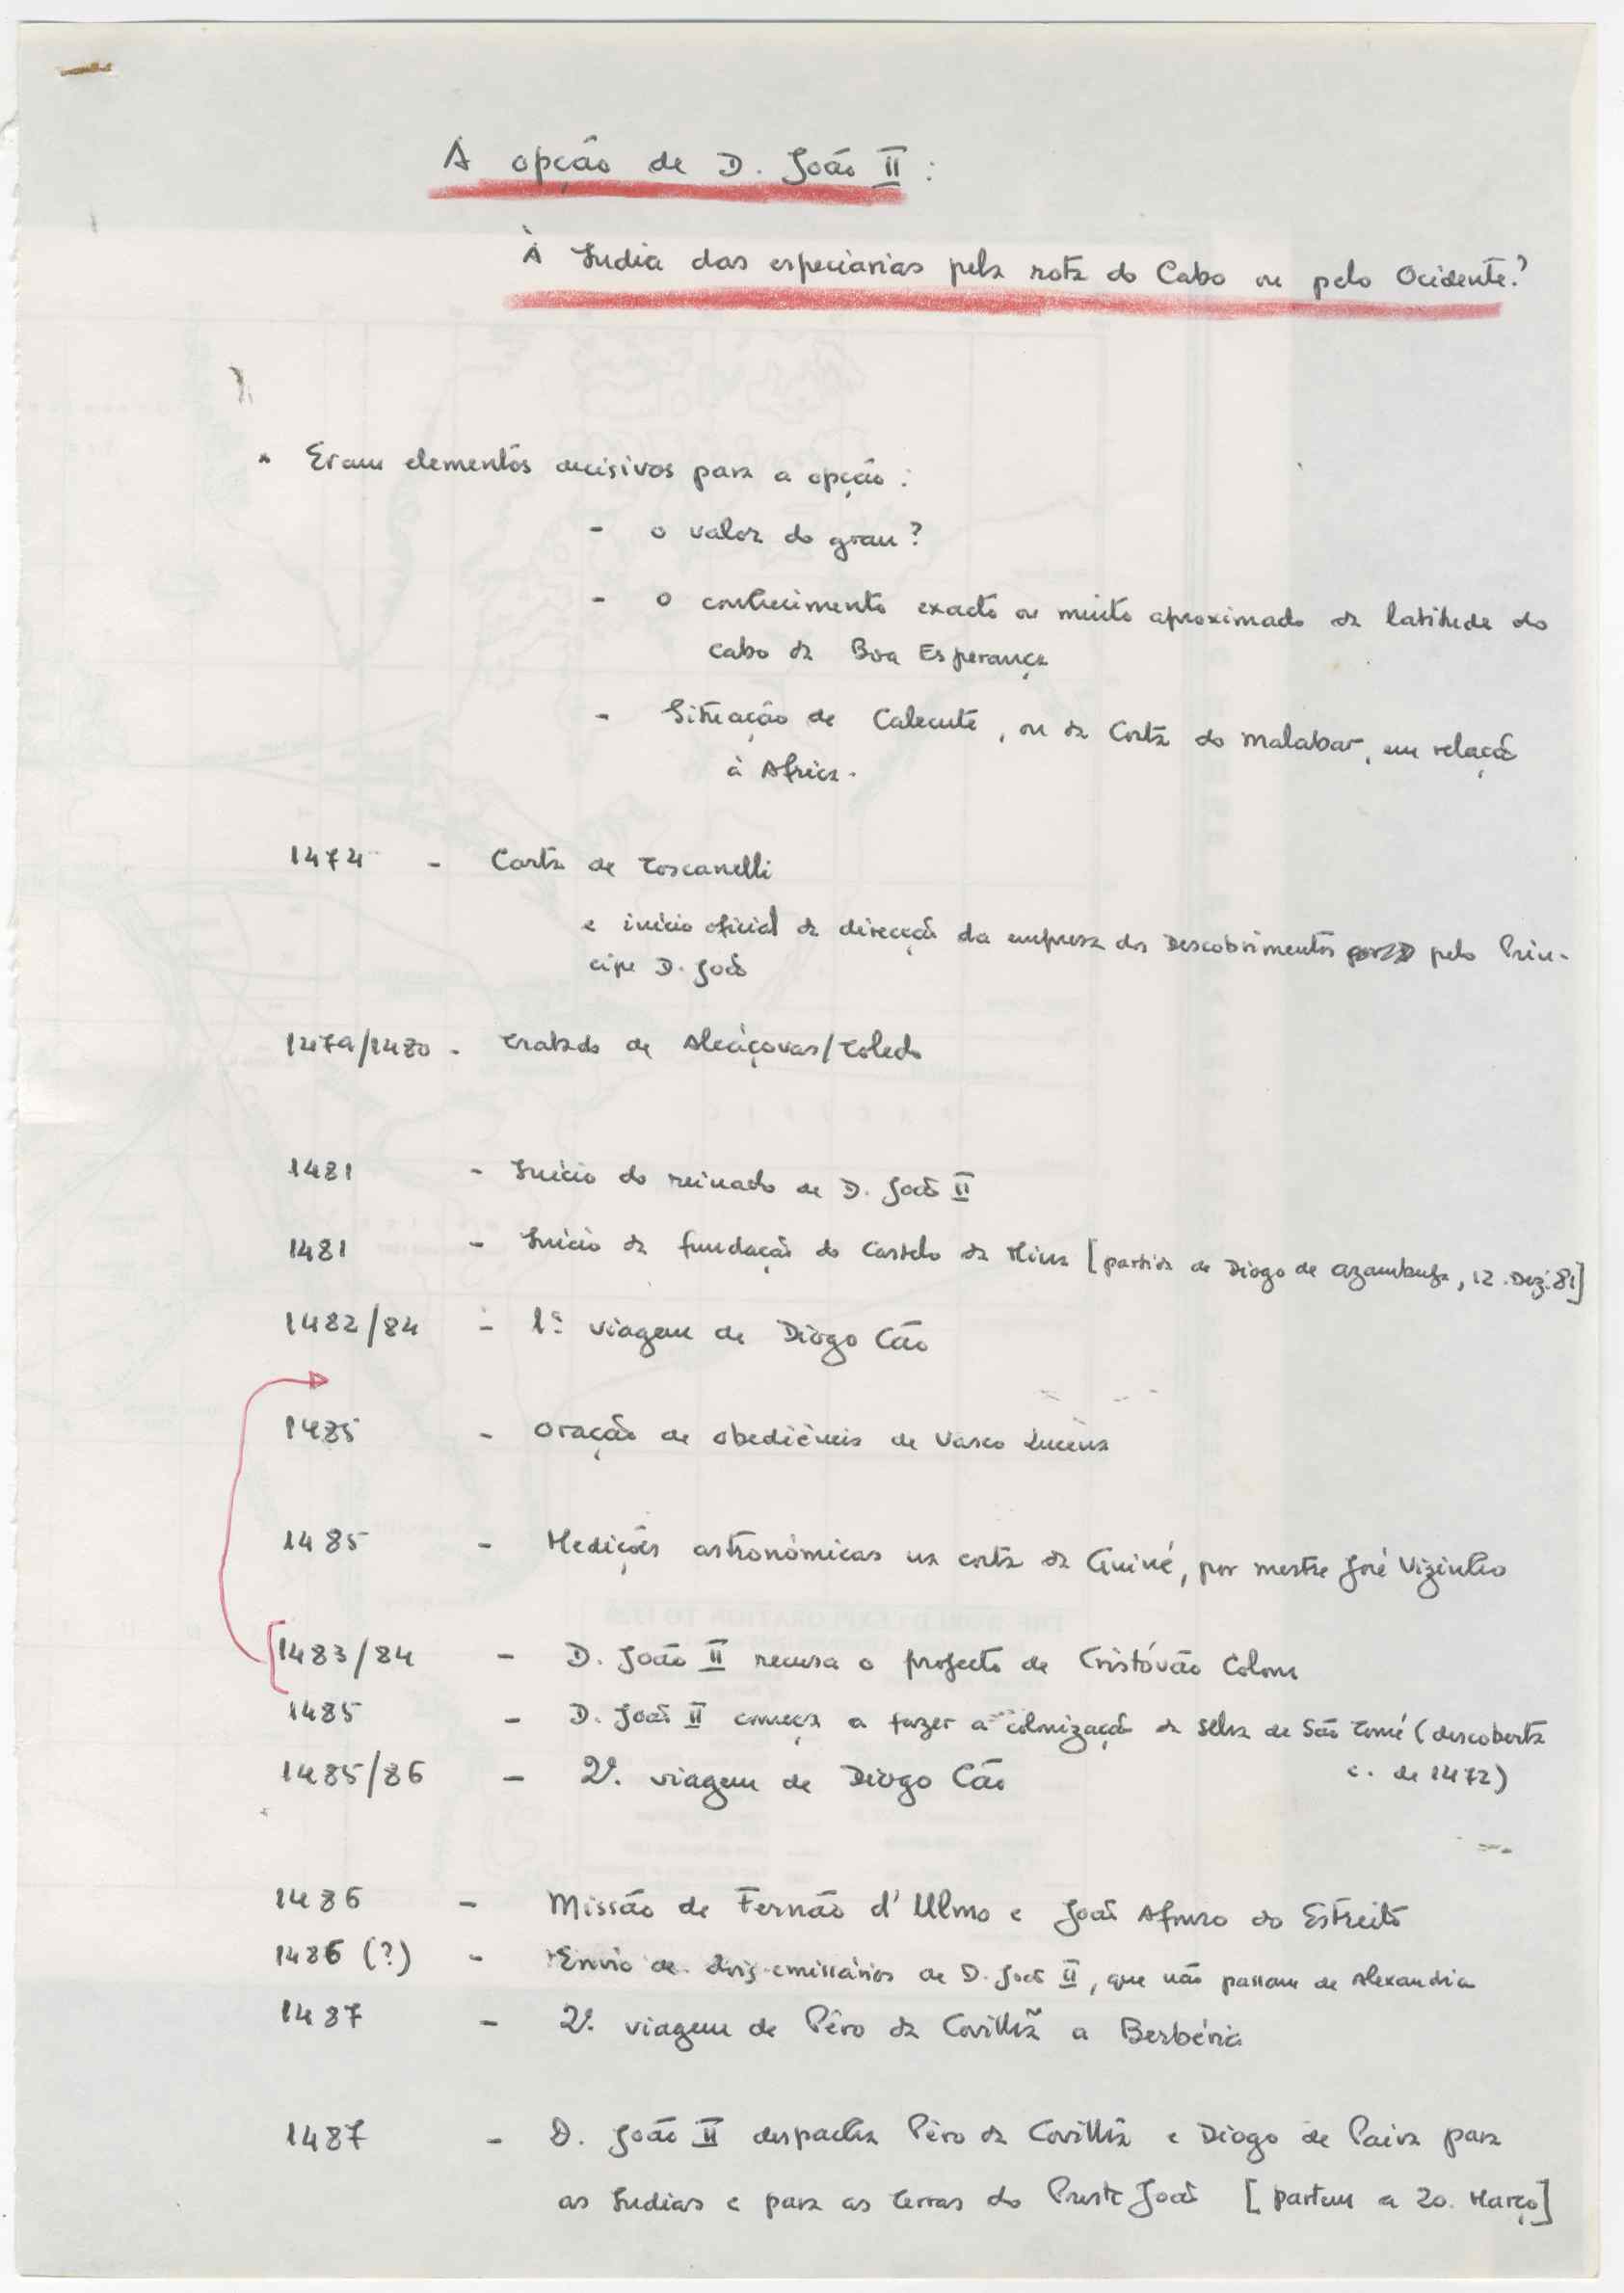 A opção de D. João II :
À India das especiarias pela rota do Cabo ou pelo Ocidente?
* Eram elementos decisivos para a opção :
- o valor do grau?
- o conhecimento exacto ou muito aproximado da latitude do
cabo da Boa Esperança
- Situação de Calecute, ou da Costa do Malabar, em relação
à Africa.
1474 - Carta de Toscanelli
e início oficial da direcção da empresa dos Descobrimentos pelo Prin-
cipe D. João
1479/1480 - Tratado de Alcáçovas/Toledo
1481 - Início do reinado de D. João II
1481 - Início da fundação do Castelo da Mina [partida de Diogo de Azambuja, 12. Dez. 81]
1482/84 - 1ª viagem de Diogo Cão
1485 - Oração de obediência de Vasco Lucena
1485 - Medições astronómicas na costa da Guiné, por mestre José Vizinho
[1483/84 - D. João II recusa o projecto de Cristóvão Colom
1485 - D. João II começa a fazer a colonização da Ilha de São Tomé (descoberta
c. de 1472)
1485/86 - 2ª. viagem de Diogo Cão
1486 - Missão de Fernão d'Ulmo e João Afonso do Estreito
1486 (?) - Envio de dois emissários de D. João II, que não passam de Alexandria
1487 - 2ª. viagem de Pêro da Covilhã a Berbéria
1487 - D. João II despacha Pêro da Covilhã e Diogo de Paiva para
as Indias e para as terras do Preste João [partem a 20. Março]